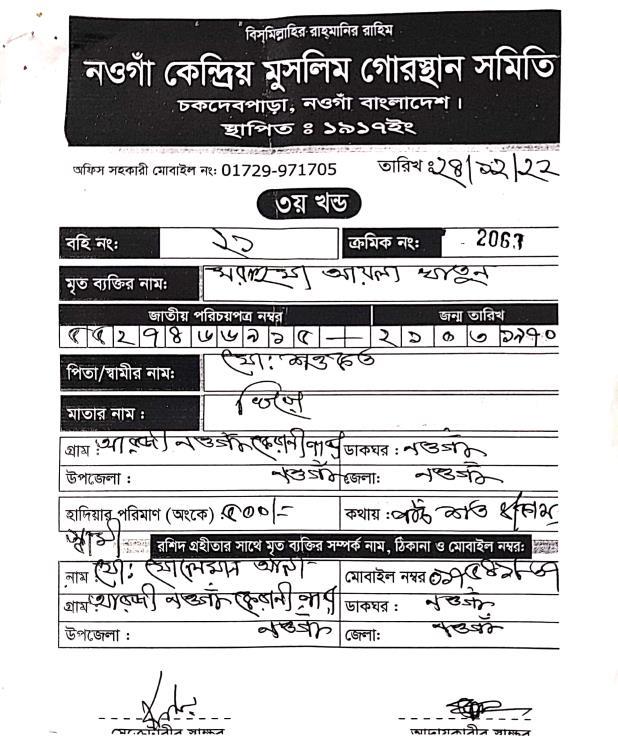 বিস্‌মিল্লাহির রাহ্‌মানির রাহিম
নওগাঁ কেন্দ্রিয় মুসলিম গোরস্থান সমিতি
চকদেবপাড়া, নওগাঁ বাংলাদেশ।
স্থাপিত ঃ ১৯১৭ইং
অফিস সহকারী মোবাইল নং: 01729-971705 তারিখ ঃ ২৪/১২/২২
৩য় খন্ড
বহি নং: ২১ ক্রমিক নং: 2067
মৃত ব্যক্তির নাম: আয়লা খাতুন
জাতীয় পরিচয়পত্র নম্বর জন্ম তারিখ
৫৫২৭৪৬৬৯১৫ — ২১০৩১৯৭০
পিতা/স্বামীর নাম: মো:
মাতার নাম :
গ্রাম: আরজী নওগাঁ ডাকঘর : নওগাঁ
উপজেলা : নওগাঁ জেলা: নওগাঁ
হাদিয়ার পরিমাণ (অংকে) : ৫০০/- কথায় : পাঁচ শত
স্বামী
রশিদ গ্রহীতার সাথে মৃত ব্যক্তির সম্পর্ক নাম, ঠিকানা ও মোবাইল নম্বর:
নাম মো: মোবাইল নম্বর
গ্রাম: আরজী নওগাঁ ডাকঘর : নওগাঁ
উপজেলা : নওগাঁ জেলা: নওগাঁ